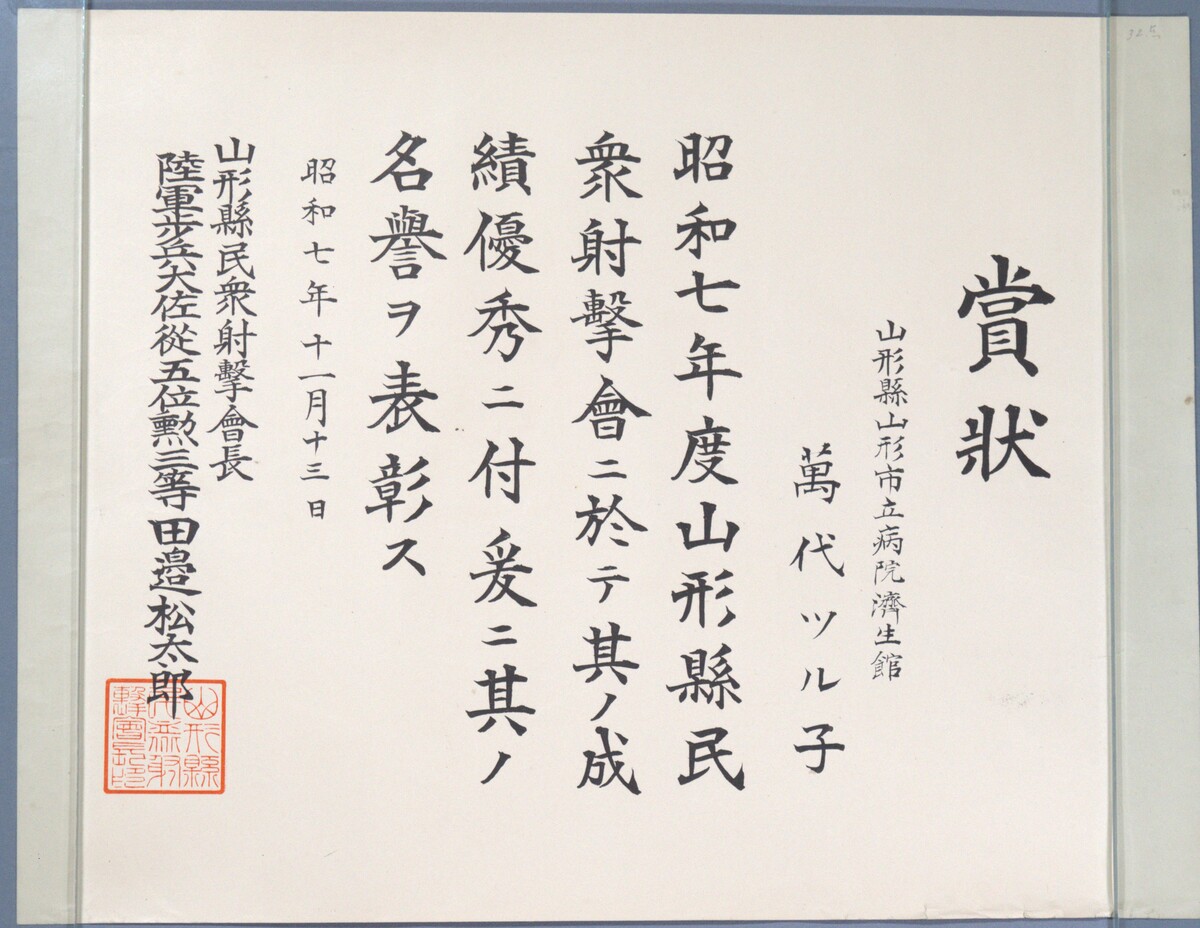 賞狀
山形縣山形市立病院濟生館
萬代ツル子
昭和七年度山形縣民
衆射擊會ニ於テ其ノ成
績優秀ニ付爰ニ其ノ
名譽ヲ表彰ス
昭和七年十一月十三日
山形縣民衆射擊會長
陸軍步兵大佐從五位勳三等田邉松太郎
山形縣
民衆射
擊會長印